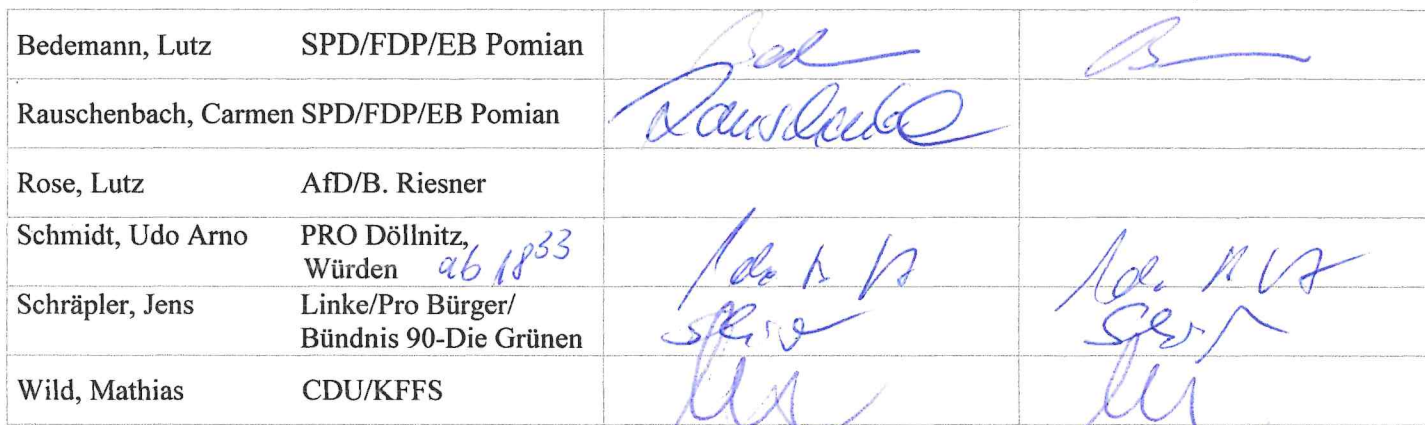 Bedemann, Lutz SPD/FDP/EB Pomian
Rauschenbach, Carmen SPD/FDP/EB Pomian
Rose, Lutz AfD/B. Riesner
Schmidt, Udo Arno PRO Döllnitz,
Würden ab 18³³
Schräpler, Jens Linke/Pro Bürger/
Bündnis 90-Die Grünen
Wild, Mathias CDU/KFFS